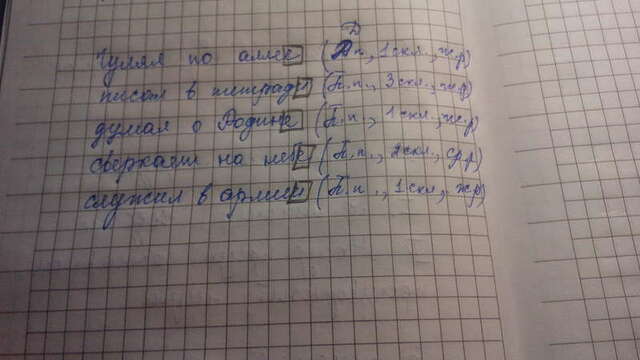 Д
Гулял по аллее (Д.п., 1 скл., ж.р)
писал в тетради (П.п., 3 скл., ж.р)
думал о Родине (П.п., 1 скл., ж.р)
сверкают на небе (П.п., 2 скл., ср.р)
служил в армии (П.п., 1 скл, ж.р)